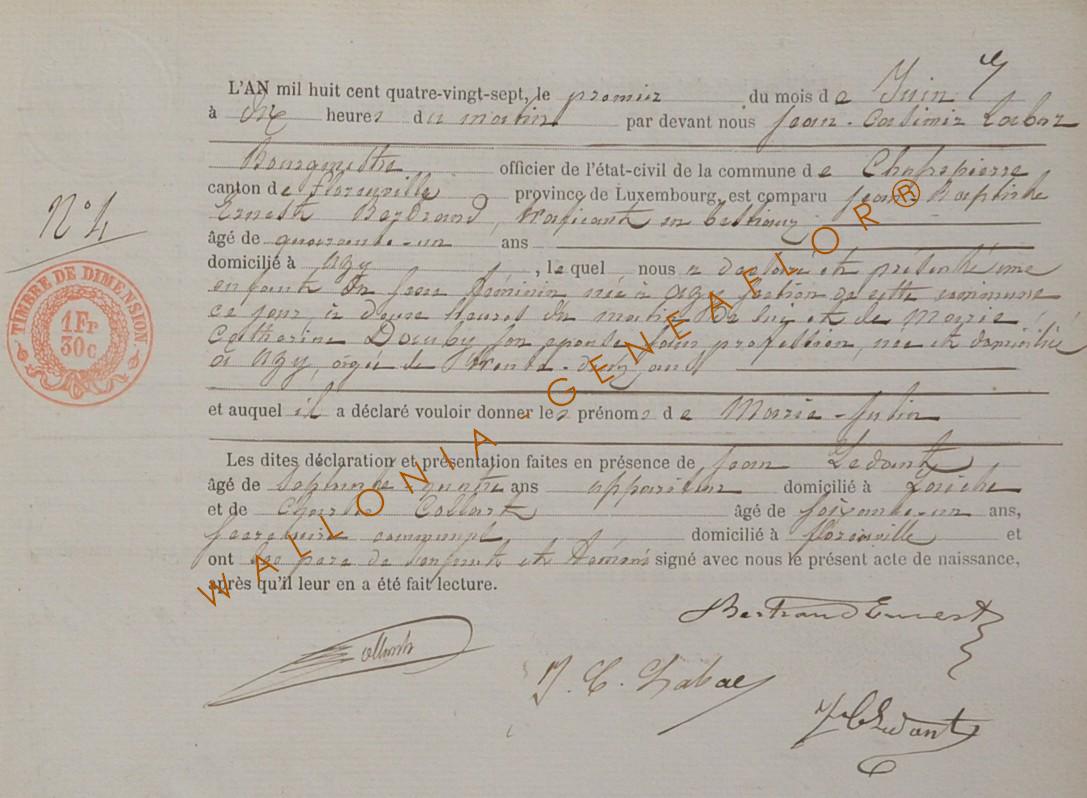 L'AN mil huit cent quatre-vingt-sept, le premier du mois de Juin
à dix heures du matin par devant nous Jean-Casimir Labac
Bourgmestre officier de l'état-civil de la commune de Chassepierre
canton de Florenville province de Luxembourg, est comparu Jean Baptiste
Ernest Bertrand, trafiquant en bestiaux
N° 4
âgé de quarante-un ans
domicilié à Azy, lequel nous a déclaré et présenté une
enfant du sexe féminin née à Azy section de cette commune
ce jour, à deux heures du matin de lui et de Marie
Catherine Dauby son épouse sans profession, née et domiciliée
à Azy, âgée de trente-deux ans
TIMBRE DE DIMENSION
1 Fr
30c
et auquel il a déclaré vouloir donner les prénoms de Marie-Julin
Les dites déclaration et présentation faites en présence de Jean Ledant
âgé de septante quatre ans appariteur domicilié à Laiche
et de Collart âgé de soixante-un ans,
secrétaire communal domicilié à Florenville et
ont les père de l'enfant et témoins signé avec nous le présent acte de naissance,
après qu'il leur en a été fait lecture.
Bertrand Ernest
Collart
J. C. Labac
Ledant
WALLONIA - GENEAFLOR®